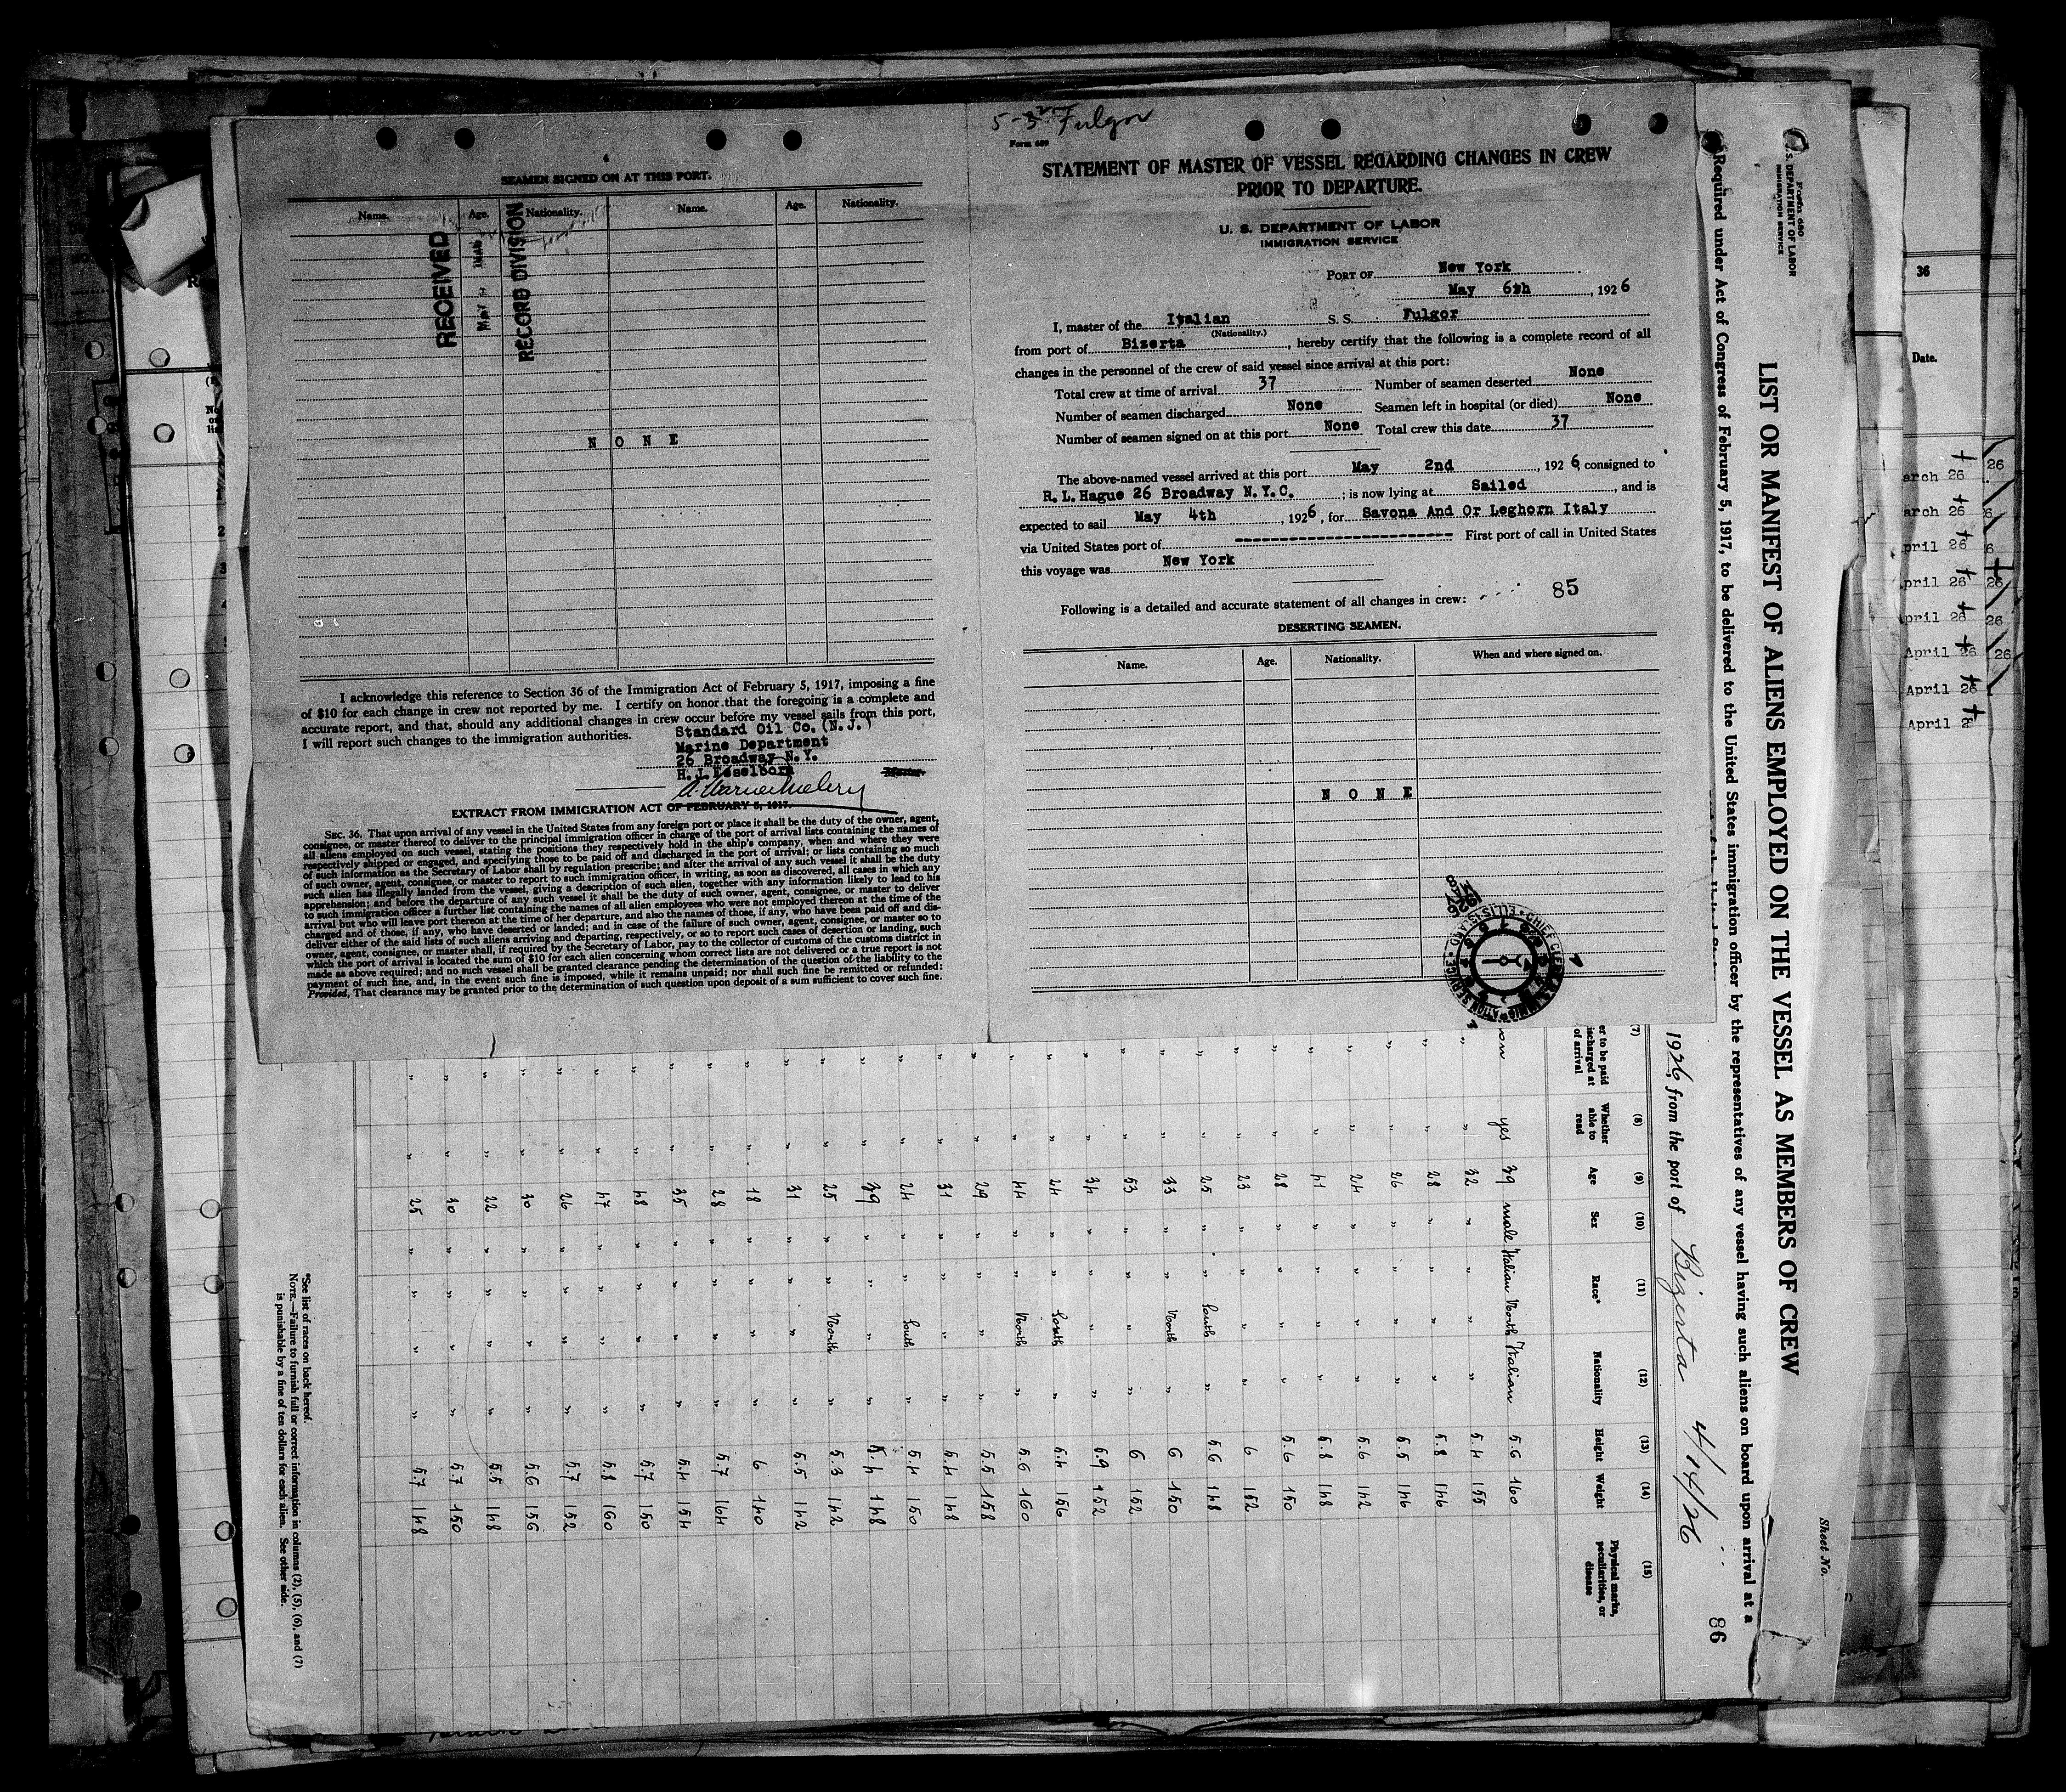 SEAMEN SIGNED ON AT THIS PORT.
Name. Age. Nationality. Name. Age. Nationality.
RECEIVED
RECORD DIVISION
N O N E
I acknowledge this reference to Section 36 of the Immigration Act of February 5, 1917, imposing a fine
of $10 for each change in crew not reported by me. I certify on honor that the foregoing is a complete and
accurate report, and that, should any additional changes in crew occur before my vessel sails from this port,
I will report such changes to the immigration authorities.
Standard Oil Co. (N.J.)
Marine Department
26 Broadway N.Y.
H.J. Esselborn
Master.
EXTRACT FROM IMMIGRATION ACT OF FEBRUARY 5, 1917.
SEC. 36. That upon arrival of any vessel in the United States from any foreign port or place it shall be the duty of the owner, agent,
consignee, or master thereof to deliver to the principal immigration officer in charge of the port of arrival lists containing the names of
all aliens employed on such vessel, stating the positions they respectively hold in the ship's company, when and where they were
respectively shipped or engaged, and specifying those to be paid off and discharged in the port of arrival; or lists containing so much
of such information as the Secretary of Labor shall by regulation prescribe; and after the arrival of any such vessel it shall be the duty
of such owner, agent, consignee, or master to report to such immigration officer, in writing, as soon as discovered, all cases in which any
such alien has illegally landed from the vessel, giving a description of such alien, together with any information likely to lead to his
apprehension; and before the departure of any such vessel it shall be the duty of such owner, agent, consignee, or master to deliver
to such immigration officer a further list containing the names of all alien employees who were not employed thereon at the time of the
arrival but who will leave port thereon at the time of her departure, and also the names of those, if any, who have been paid off and dis-
charged and of those, if any, who have deserted or landed; and in case of the failure of such owner, agent, consignee, or master so to
deliver either of the said lists of such aliens arriving and departing, respectively, or so to report such cases of desertion or landing, such
owner, agent, consignee, or master shall, if required by the Secretary of Labor, pay to the collector of customs of the customs district in
which the port of arrival is located the sum of $10 for each alien concerning whom correct lists are not delivered or a true report is not
made as above required; and no such vessel shall be granted clearance pending the determination of the question of the liability to the
payment of such fine, and, in the event such fine is imposed, while it remains unpaid; nor shall such fine be remitted or refunded:
Provided, That clearance may be granted prior to the determination of such question upon deposit of a sum sufficient to cover such fine.
Fulgor
Form 689
STATEMENT OF MASTER OF VESSEL REGARDING CHANGES IN CREW
PRIOR TO DEPARTURE.
U. S. DEPARTMENT OF LABOR
IMMIGRATION SERVICE
PORT OF New York
May 6th, 1926
I, master of the Italian S. S. Fulgor
(Nationality.)
from port of Bizerta, hereby certify that the following is a complete record of all
changes in the personnel of the crew of said vessel since arrival at this port:
Total crew at time of arrival 37 Number of seamen deserted None
Number of seamen discharged None Seamen left in hospital (or died) None
Number of seamen signed on at this port None Total crew this date 37
The above-named vessel arrived at this port May 2nd, 1926, consigned to
R. L. Hague 26 Broadway N.Y.C. ; is now lying at Sailed, and is
expected to sail May 4th, 1926, for Savona And Or Leghorn Italy
via United States port of First port of call in United States
this voyage was New York
85
Following is a detailed and accurate statement of all changes in crew:
DESERTING SEAMEN.
Name. Age. Nationality. When and where signed on.
N O N E
Form 680
U.S. DEPARTMENT OF LABOR
IMMIGRATION SERVICE
Sheet No.
LIST OR MANIFEST OF ALIENS EMPLOYED ON THE VESSEL AS MEMBERS OF CREW
Required under Act of Congress of February 5, 1917, to be delivered to the United States immigration officer by the representatives of any vessel having such aliens on board upon arrival at a
86
1926, from the port of Bizerta 4/14/26
(7) (8) (9) (10) (11) (12) (13) (14) (15)
er to be paid
ischarged at
of arrival
Whether
able to
read
Age
Sex
Race*
Nationality
Height
Weight
Physical marks,
peculiarities, or
disease
yes 39 male Italian North Italian 5.6 160
" 32 " " " " 5.4 155
" 28 " " " " 5.8 146
" 26 " " " " 5.5 146
" 24 " " " " 5.6 142
" 41 " " " " 5.8 148
" 28 " " " " 5.6 150
" 23 " " " " 6 152
" 25 " " South " 5.6 148
" 33 " " North " 6 150
" 53 " " " " 6 152
" 34 " " " " 5.9 152
" 24 " " South " 5.4 156
" 44 " " North " 5.6 160
" 29 " " " " 5.5 158
" 31 " " " " 5.4 148
" 24 " " South " 5.4 150
" 39 " " " " 5.4 148
" 25 " " North " 5.3 142
" 31 " " " " 5.5 142
" 18 " " " " 6 140
" 28 " " " " 5.7 164
" 35 " " " " 5.4 154
" 48 " " " " 5.7 150
" 47 " " " " 5.8 160
" 26 " " " " 5.7 152
" 30 " " " " 5.6 156
" 22 " " " " 5.5 148
" 30 " " " " 5.7 150
" 25 " " " " 5.7 148
*See list of races on back hereof.
NOTE.—Failure to furnish full or correct information in columns (2), (5), (6), and (7)
is punishable by a fine of ten dollars for each alien. See other side.
36
Date.
arch 26
arch 26
pril 26
pril 26
pril 26
April 26
April 26
April 2